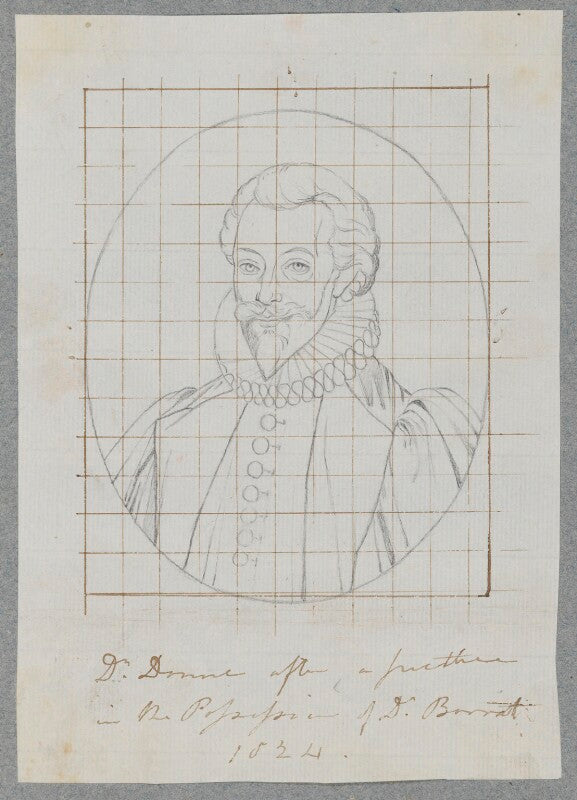 Dr. Donne after a picture
in the Possession of Dr. Barrett
1824.